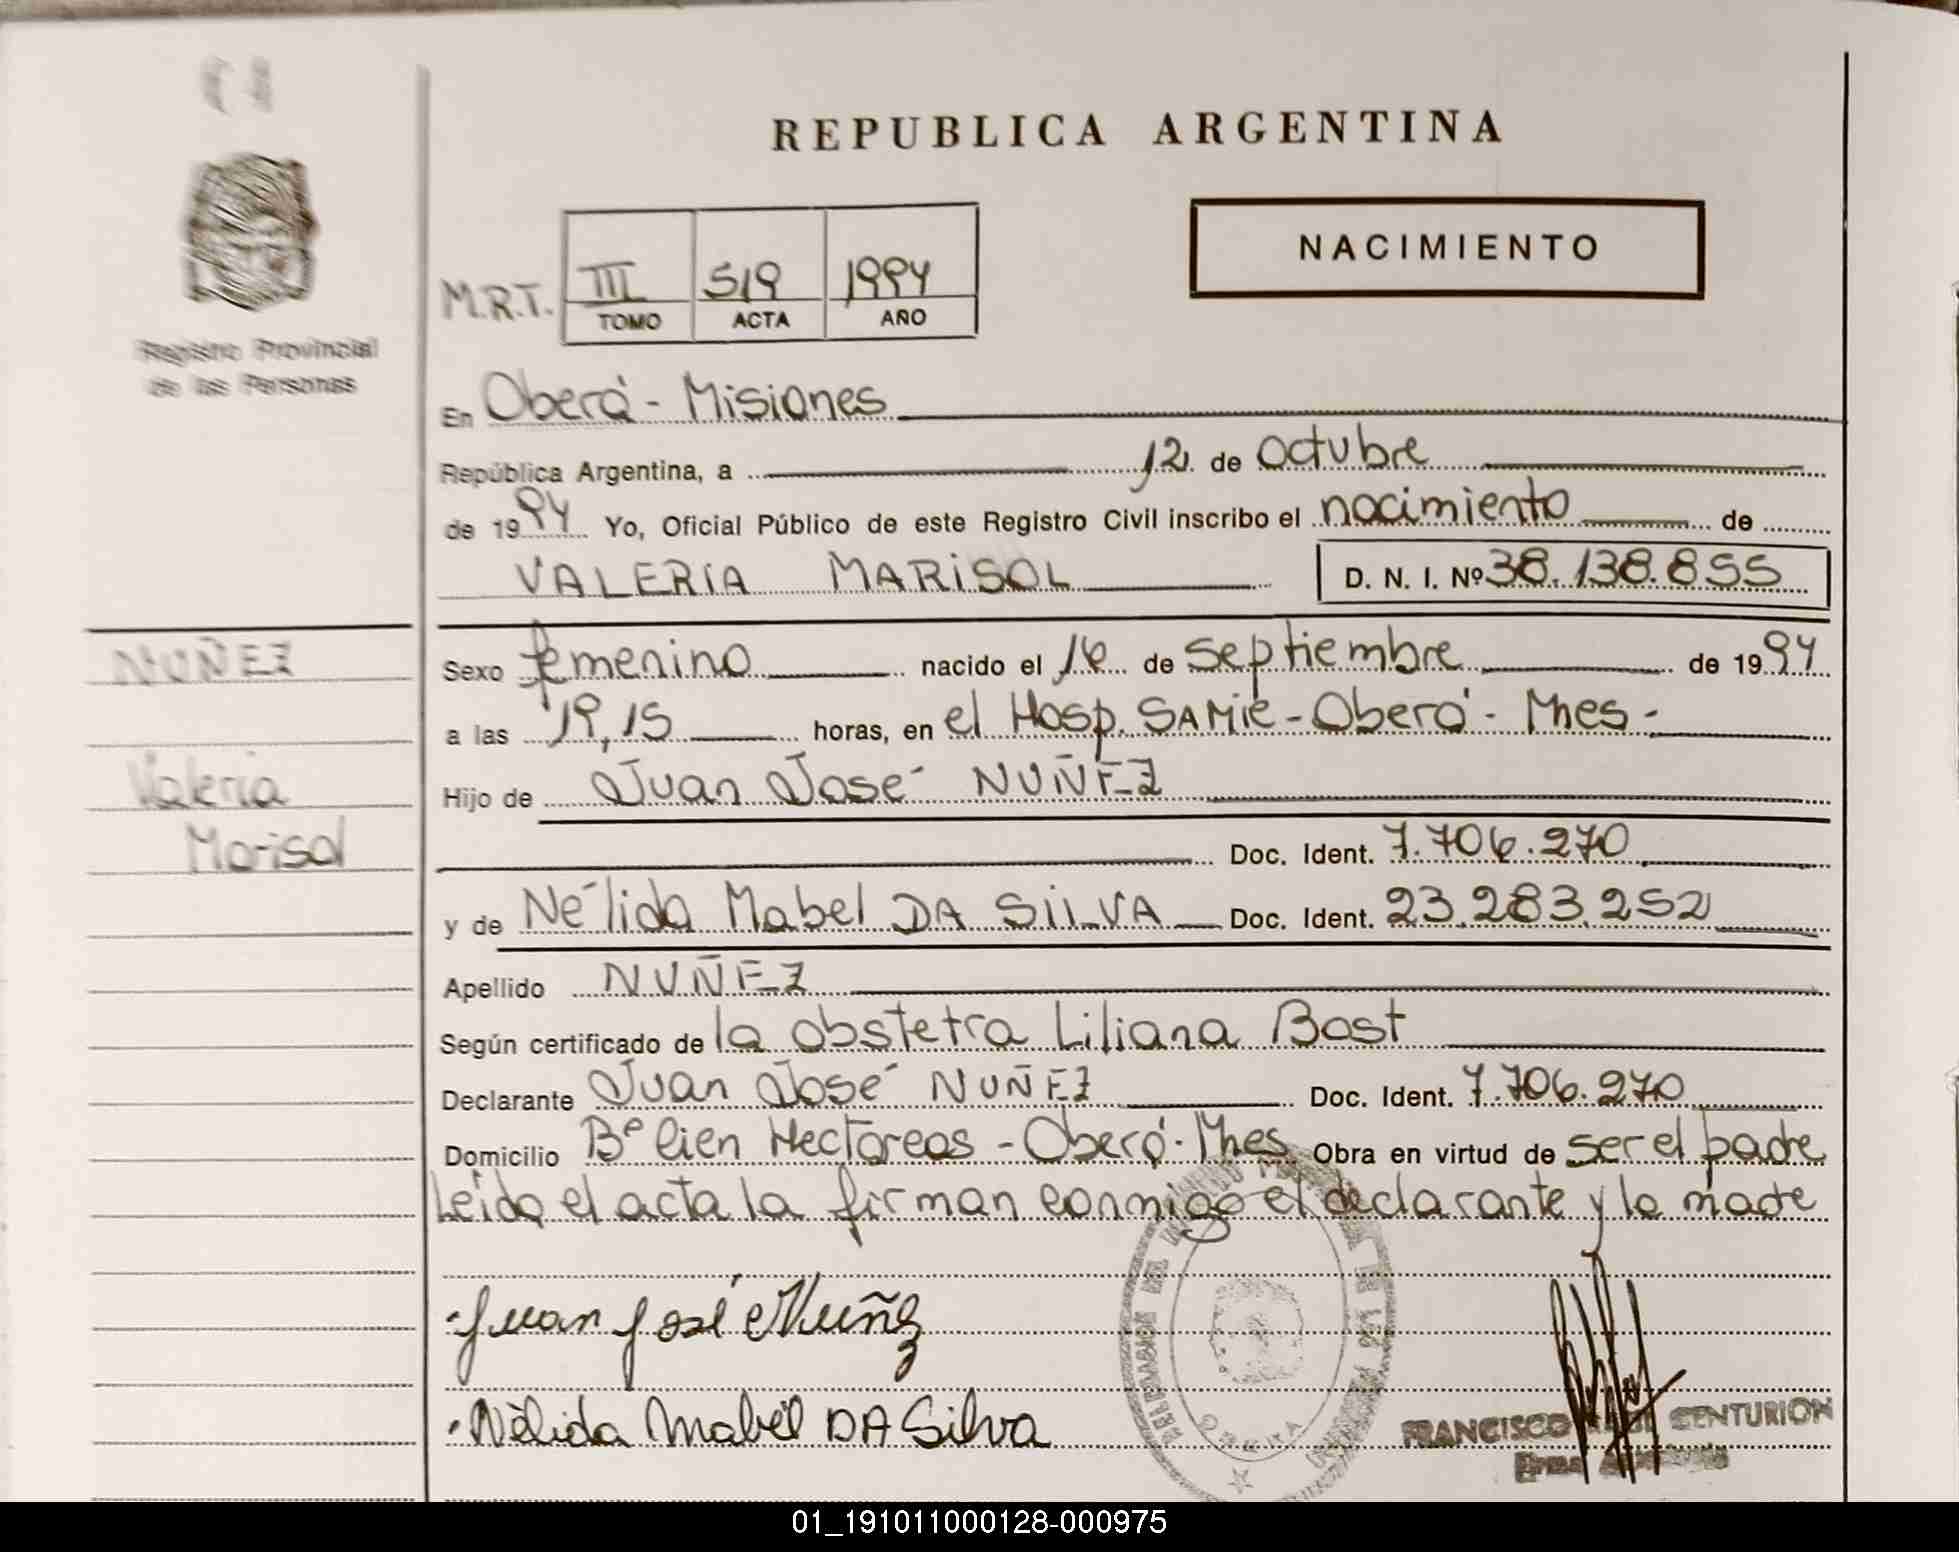 REPUBLICA ARGENTINA
NACIMIENTO
M.R.T. III 519 1994
TOMO ACTA AÑO
Registro Provincial
de las Personas
En Oberá - Misiones
República Argentina, a 12 de octubre
de 1994 Yo, Oficial Público de este Registro Civil inscribo el nacimiento de
VALERIA MARISOL D. N. I. Nº 38.138.855
NUÑEZ
Valeria
Marisol
Sexo femenino nacido el 16 de septiembre de 1994
a las 19,15 horas, en el Hosp. SAMIC - Oberá - Mnes -
Hijo de Juan José NUÑEZ
Doc. Ident. 7.706.270
y de Nélida Mabel DA SILVA Doc. Ident. 23.283.252
Apellido NUÑEZ
Según certificado de la obstetra Liliana Bast
Declarante Juan José NUÑEZ Doc. Ident. 7.706.270
Domicilio Bº Cien Hectoreas - Oberá - Mnes Obra en virtud de ser el padre
Leida el acta la firman conmigo el declarante y la madre
Juan José Nuñez
Nélida Mabel DA Silva
FRANCISCO CENTURION
OBERA
01_191011000128-000975